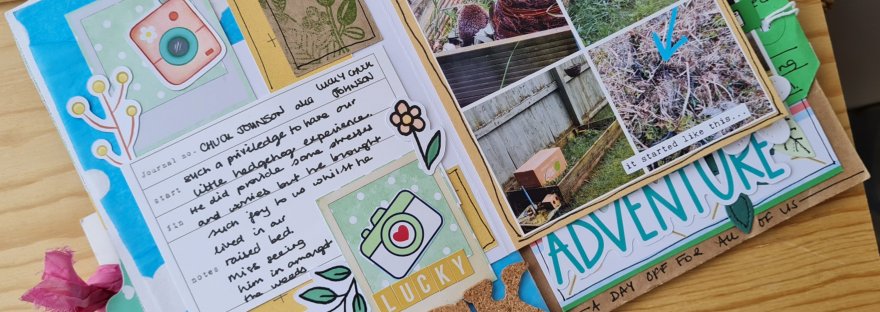 journal no.
CHUCK JOHNSON aka LUCKY CHUCK
JOHNSON
start
such a priviledge to have our
little hedgehog experience.
He did provide some stresses
fin
and worries but he brought
such joy to us whilst he
lived in our
raised bed.
notes
Miss seeing
him in amongst
the weeds
LUCKY
it started like this...
ADVENTURE
A DAY OFF FOR ALL OF US